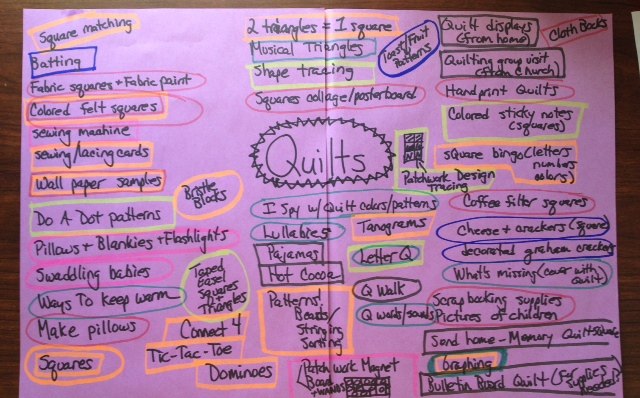 Square matching
Batting
Fabric squares + Fabric paint
Colored felt squares
sewing machine
sewing/lacing cards
Wall paper samples
Bristle
Blocks
Do A Dot patterns
Pillows + Blankies + Flashlights
Swaddling babies
Ways To keep warm
Make pillows
Squares
Taped
Easel
Squares
4+
Triangles
Connect 4
Tic-Tac-Toe
Dominoes
2 triangles = 1 square
Musical Triangles
Shape tracing
Squares collage/posterboard
Toast/Fruit
Patterns
Quilts
Patchwork Design
Tracing
I Spy w/ Quilt colors/patterns
Lullabies
Tanograms
Pajamas
Hot Cocoa
Letter Q
Q Walk
Q words/sounds
Patterns/
Beads/
Stringing
Sorting
Patchwork Magnet
Board
Quilt displays
(from home)
Cloth Books
Quilting group visit
(from church)
Handprint Quilts
Colored sticky notes
(squares)
square bingo (letters
numbers
colors)
Coffee filter squares
Cheese + crackers (square)
decorated graham crackers
What's missing (cover with
quilt)
Scrapbooking supplies
Pictures of children
Send home - Memory Quilt Square
Graphing
Bulletin Board Quilt (For
supplies
needed)